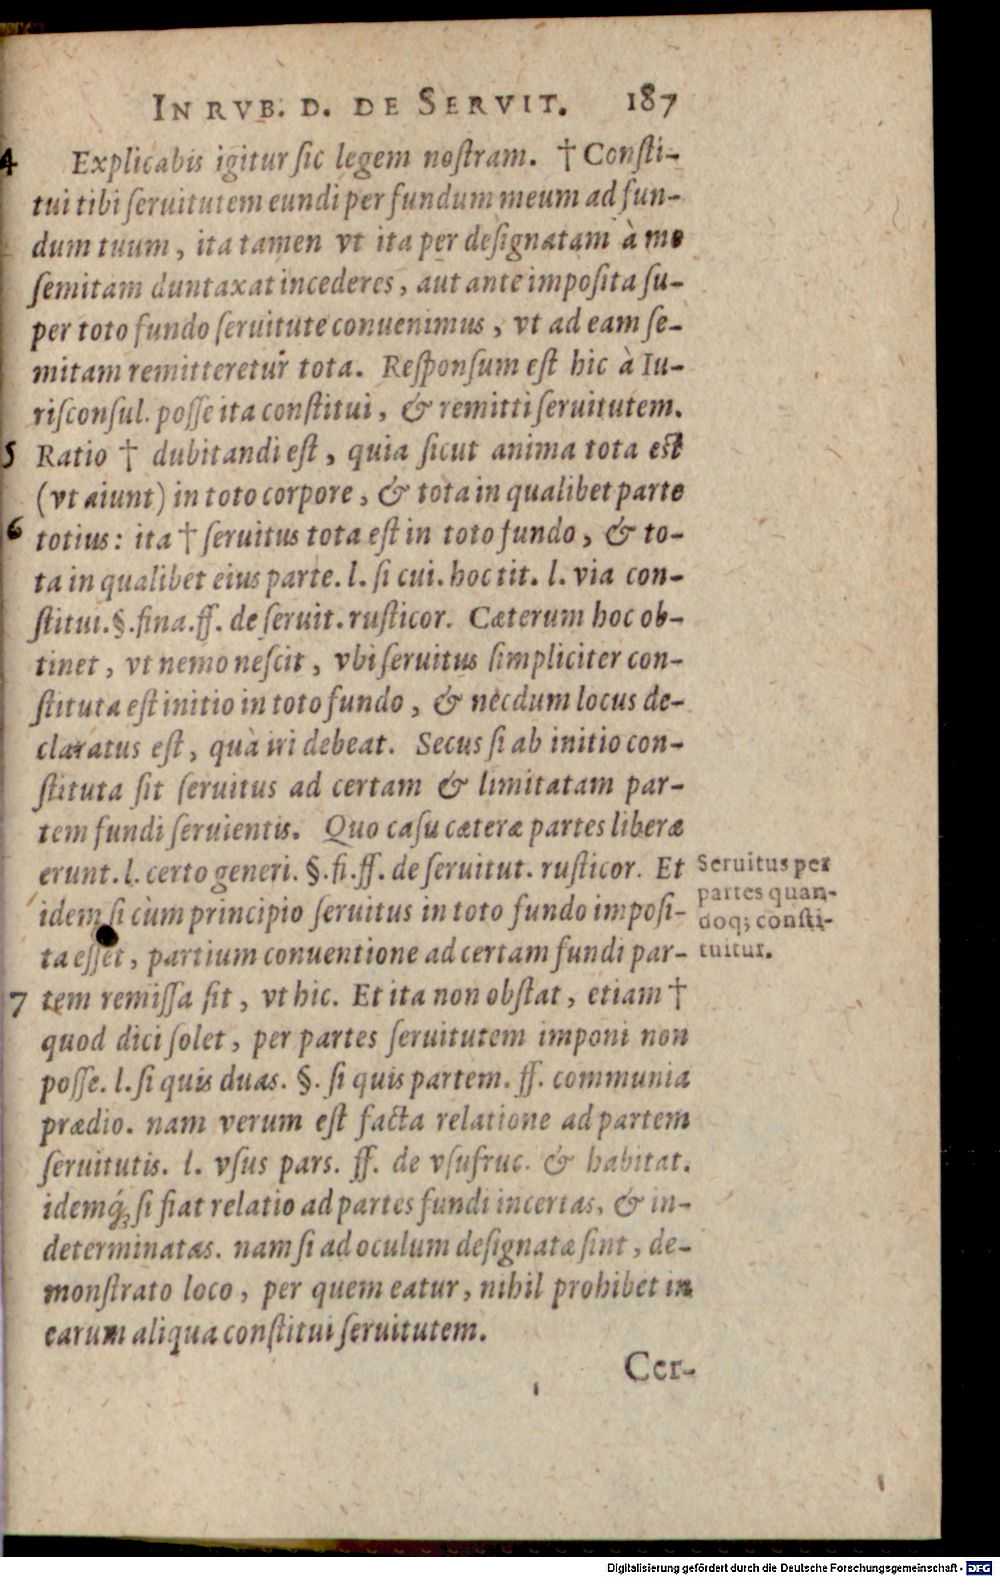 IN RVB. D. DE SERVIT. 187
4 Explicabis igitur ſic legem noſtram. † Conſti-
tui tibi ſeruitutem eundi per fundum meum ad fun-
dum tuum, ita tamen vt ita per deſignatam à me
ſemitam duntaxat incederes, aut ante impoſita ſu-
per toto fundo ſeruitute conuenimus, vt ad eam ſe-
mitam remitteretur tota. Reſponſum eſt hic à Iu-
riſconſul. poſſe ita conſtitui, & remitti ſeruitutem.
5 Ratio † dubitandi eſt, quia ſicut anima tota eſt
(vt aiunt) in toto corpore, & tota in qualibet parte
6 totius: ita † ſeruitus tota eſt in toto fundo, & to-
ta in qualibet eius parte. l. ſi cui. hoc tit. l. via con-
ſtitui. §. fina. ff. de ſeruit. ruſticor. Cæterum hoc ob-
tinet, vt nemo neſcit, vbi ſeruitus ſimpliciter con-
ſtituta eſt initio in toto fundo, & necdum locus de-
claratus eſt, quà iri debeat. Secus ſi ab initio con-
ſtituta ſit ſeruitus ad certam & limitatam par-
tem fundi ſeruientis. Quo caſu cæteræ partes liberæ
erunt. l. certo generi. §. fi. ff. de ſeruitut. ruſticor. Et
idem ſi cùm principio ſeruitus in toto fundo impoſi-
ta eſſet, partium conuentione ad certam fundi par-
7 tem remiſſa ſit, vt hic. Et ita non obſtat, etiam †
quod dici ſolet, per partes ſeruitutem imponi non
poſſe. l. ſi quis duas. §. ſi quis partem. ff. communia
prædio. nam verum eſt facta relatione ad partem
ſeruitutis. l. vſus pars. ff. de vſufruc. & habitat.
idemq́; ſi fiat relatio ad partes fundi incertas, & in-
determinatas. nam ſi ad oculum deſignatæ ſint, de-
monſtrato loco, per quem eatur, nihil prohibet in
earum aliqua conſtitui ſeruitutem.
Cer-
Seruitus per
partes quan-
doq; conſti-
tuitur.
Digitalisierung gefördert durch die Deutsche Forschungsgemeinschaft - DFG